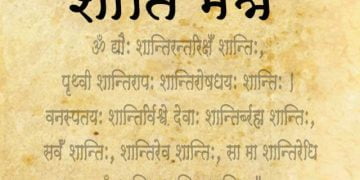 शान्ति मन्त्र
ॐ द्यौः शान्तिरन्तरिक्षँ शान्तिः,
पृथ्वी शान्तिरापः शान्तिरोषधयः शान्तिः ।
वनस्पतयः शान्तिर्विश्वे देवाः शान्तिर्ब्रह्म शान्तिः,
सर्वँ शान्तिः, शान्तिरेव शान्तिः, सा मा शान्तिरेधि